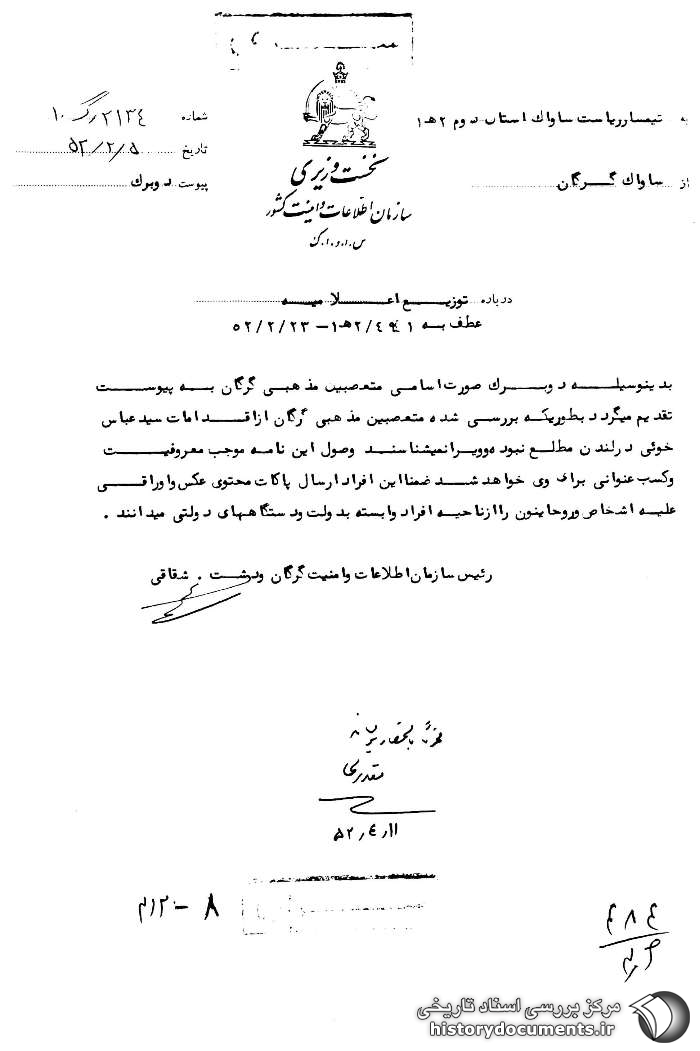 به تیمسار ریاست ساواک استان دوم ۲ه‍۱
شماره ۲۱۳۴/گ ۱۰
از ساواک گرگان
تاریخ ۵۲/۲/۵
پیوست دوبرگ
نخست وزیری
سازمان اطلاعات و امنیت کشور
س.ا.و.ا.ک
درباره توزیع اعلامیه
عطف به ۲ه‍۱ - ۵۲/۲/۲۳
بدینوسیله دوبرگ صورت اسامی متعصبین مذهبی گرگان به پیوست
تقدیم میگردد بطوریکه بررسی شده متعصبین مذهبی گرگان از اقدامات سید عباس
خوئی در لندن مطلع نبوده و ویرا نمیشناسند وصول این نامه موجب معروفیت
و کسب عنوانی برای وی خواهد شد ضمنا این افراد ارسال پاکات محتوی عکس و اوراقی
علیه اشخاص و روحانیون را از ناحیه افراد وابسته بدولت و دستگاههای دولتی میدانند .
رئیس سازمان اطلاعات و امنیت گرگان و دشت . شقاقی
مقدری
۵۲٫۴٫۱۱
۸ - ۱۲
۴۸۴
مرکز بررسی اسناد تاریخی
historydocuments.ir